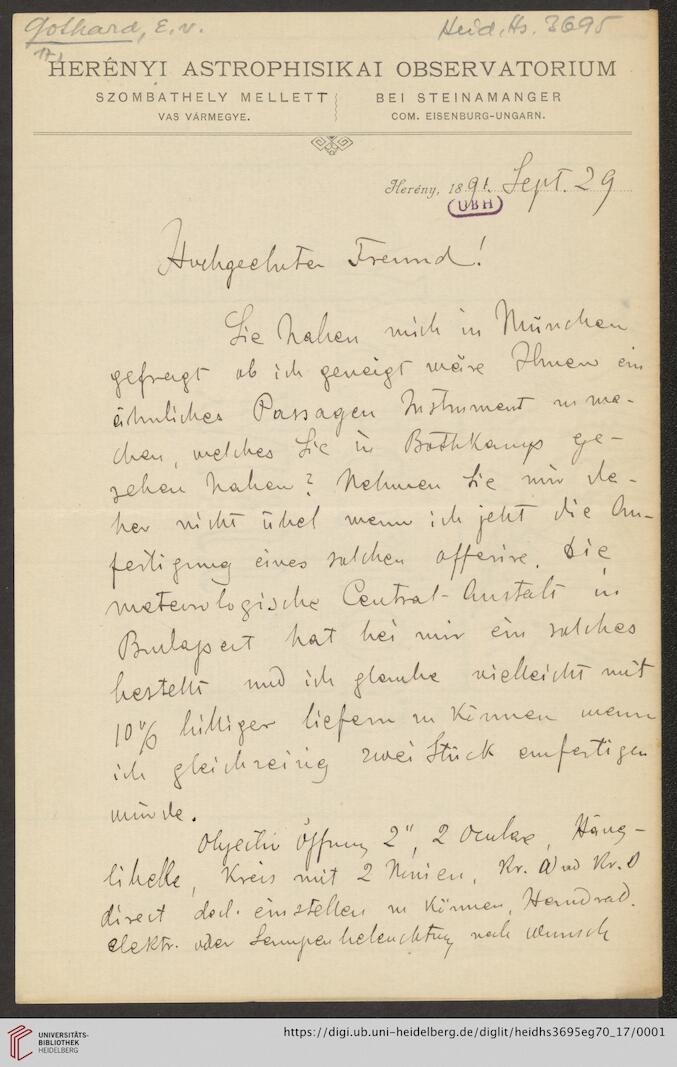 Gothard, E. v.
Heid. Hs. 3695
17)
HERÉNYI ASTROPHISIKAI OBSERVATORIUM
SZOMBATHELY MELLETT
BEI STEINAMANGER
VAS VÁRMEGYE.
COM. EISENBURG-UNGARN.
Herény, 1891. Sept. 29
UBH
Hochgeehrter Freund!
Sie haben mich in München
gefragt ob ich geneigt wäre Ihnen ein
ähnliches Passagen Instrument zu ma-
chen, welches Sie in Bothkamp ge-
sehen haben? Nehmen Sie mir da-
her nicht übel wenn ich jetzt die An-
fertigung eines solchen offerire. Die
meteorologische Central-Anstalt in
Budapest hat bei mir ein solches
bestellt und ich glaube vielleicht mit
10% billiger liefern zu können wenn
ich gleichzeitig zwei Stück anfertigen
würde.
Objectiv Öffnung 2", 2 Oculare, Häng-
libelle, Kreis mit 2 Nonien,
direct einstellen zu können, Handrad.
elektr. oder Lampenbeleuchtung nach Wunsch
UNIVERSITÄTS-
BIBLIOTHEK
HEIDELBERG
https://digi.ub.uni-heidelberg.de/diglit/heidhs3695eg70_17/0001